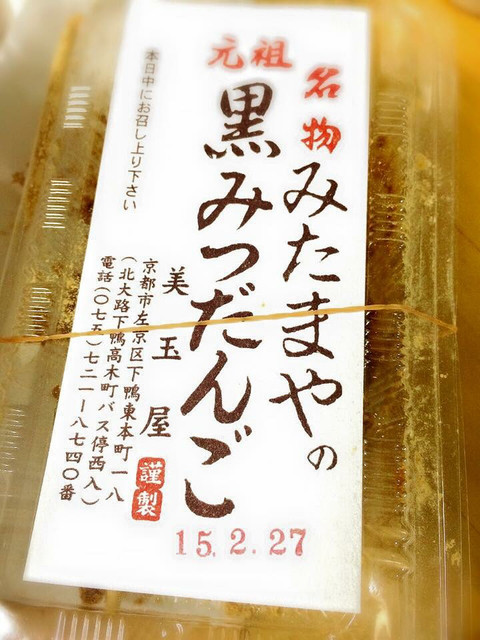 名物
みたまやの
元祖
黒みつだんご
本日中にお召し上り下さい
美玉屋
謹製
京都市左京区下鴨東本町一八
(北大路下鴨高木町バス停西入)
電話(〇七五)七二一ー八七四〇番
15.2.27